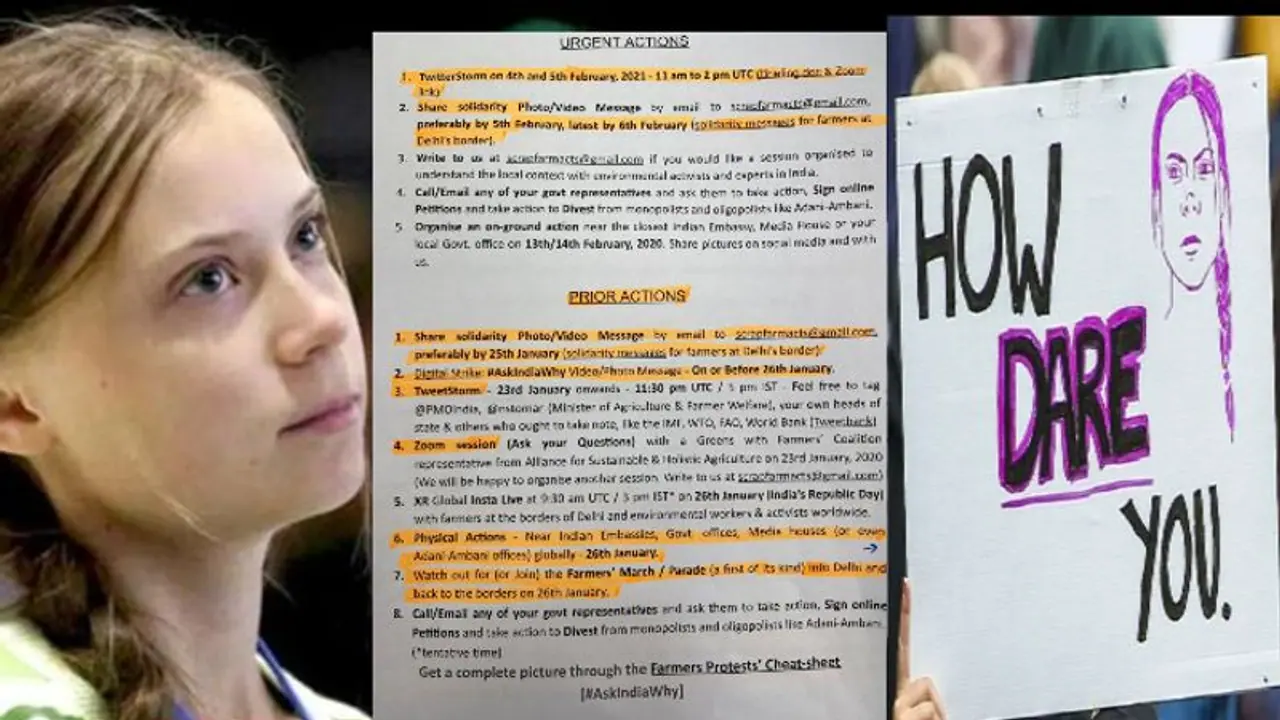 URGENT ACTIONS
1. TwitterStorm on 4th and 5th February, 2021 - 11 am to 2 pm UTC & Zoom
link)
2. Share solidarity Photo/Video Message by email to scrapfarmacts@gmail.com,
preferably by 5th February, latest by 6th February (solidarity messages for farmers at
Delhi's border).
3. Write to us at scrapfarmacts@gmail.com if you would like a session organised to
understand the local context with environmental activists and experts in India.
4. Call/Email any of your govt representatives and ask them to take action, Sign online
Petitions and take action to Divest from monopolists and oligopolists like Adani-Ambani.
5. Organise an on-ground action near the closest Indian Embassy, Media House or your
local Govt. office on 13th/14th February, 2020. Share pictures on social media and with
us.
PRIOR ACTIONS
1. Share solidarity Photo/Video Message by email to scrapfarmacts@gmail.com,
preferably by 25th January (solidarity messages for farmers at Delhi's border)
2. Digital Strike: #AskIndiaWhy Video/Photo Message - On or Before 26th January.
3. TweetStorm - 23rd January onwards - 11:30 pm UTC / 5 pm IST - Feel free to tag
@PMOIndia, @nstomar (Minister of Agriculture & Farmer Welfare), your own heads of
state & others who ought to take note, like the IMF, WTO, FAO, World Bank (Tweetbank)
4. Zoom session (Ask your Questions) with a Greens with Farmers' Coalition
representative from Alliance for Sustainable & Holistic Agriculture on 23rd January, 2020
(We will be happy to organise another session. Write to us at scrapfarmacts@gmail.com)
5. XR Global Insta Live at 9:30 am UTC / 3 pm IST* on 26th January (India's Republic Day)
with farmers at the borders of Delhi and environmental workers & activists worldwide.
6. Physical Actions - Near Indian Embassies, Govt. offices, Media houses (or even
Adani-Ambani offices) globally - 26th January.
7. Watch out for (or Join) the Farmers' March / Parade (a first of its kind) into Delhi and
back to the borders on 26th January.
8. Call/Email any of your govt representatives and ask them to take action, Sign online
Petitions and take action to Divest from monopolists and oligopolists like Adani-Ambani.
(*tentative time)
Get a complete picture through the Farmers Protests' Cheat-sheet
[#AskIndiaWhy]
HOW
DARE
YOU.